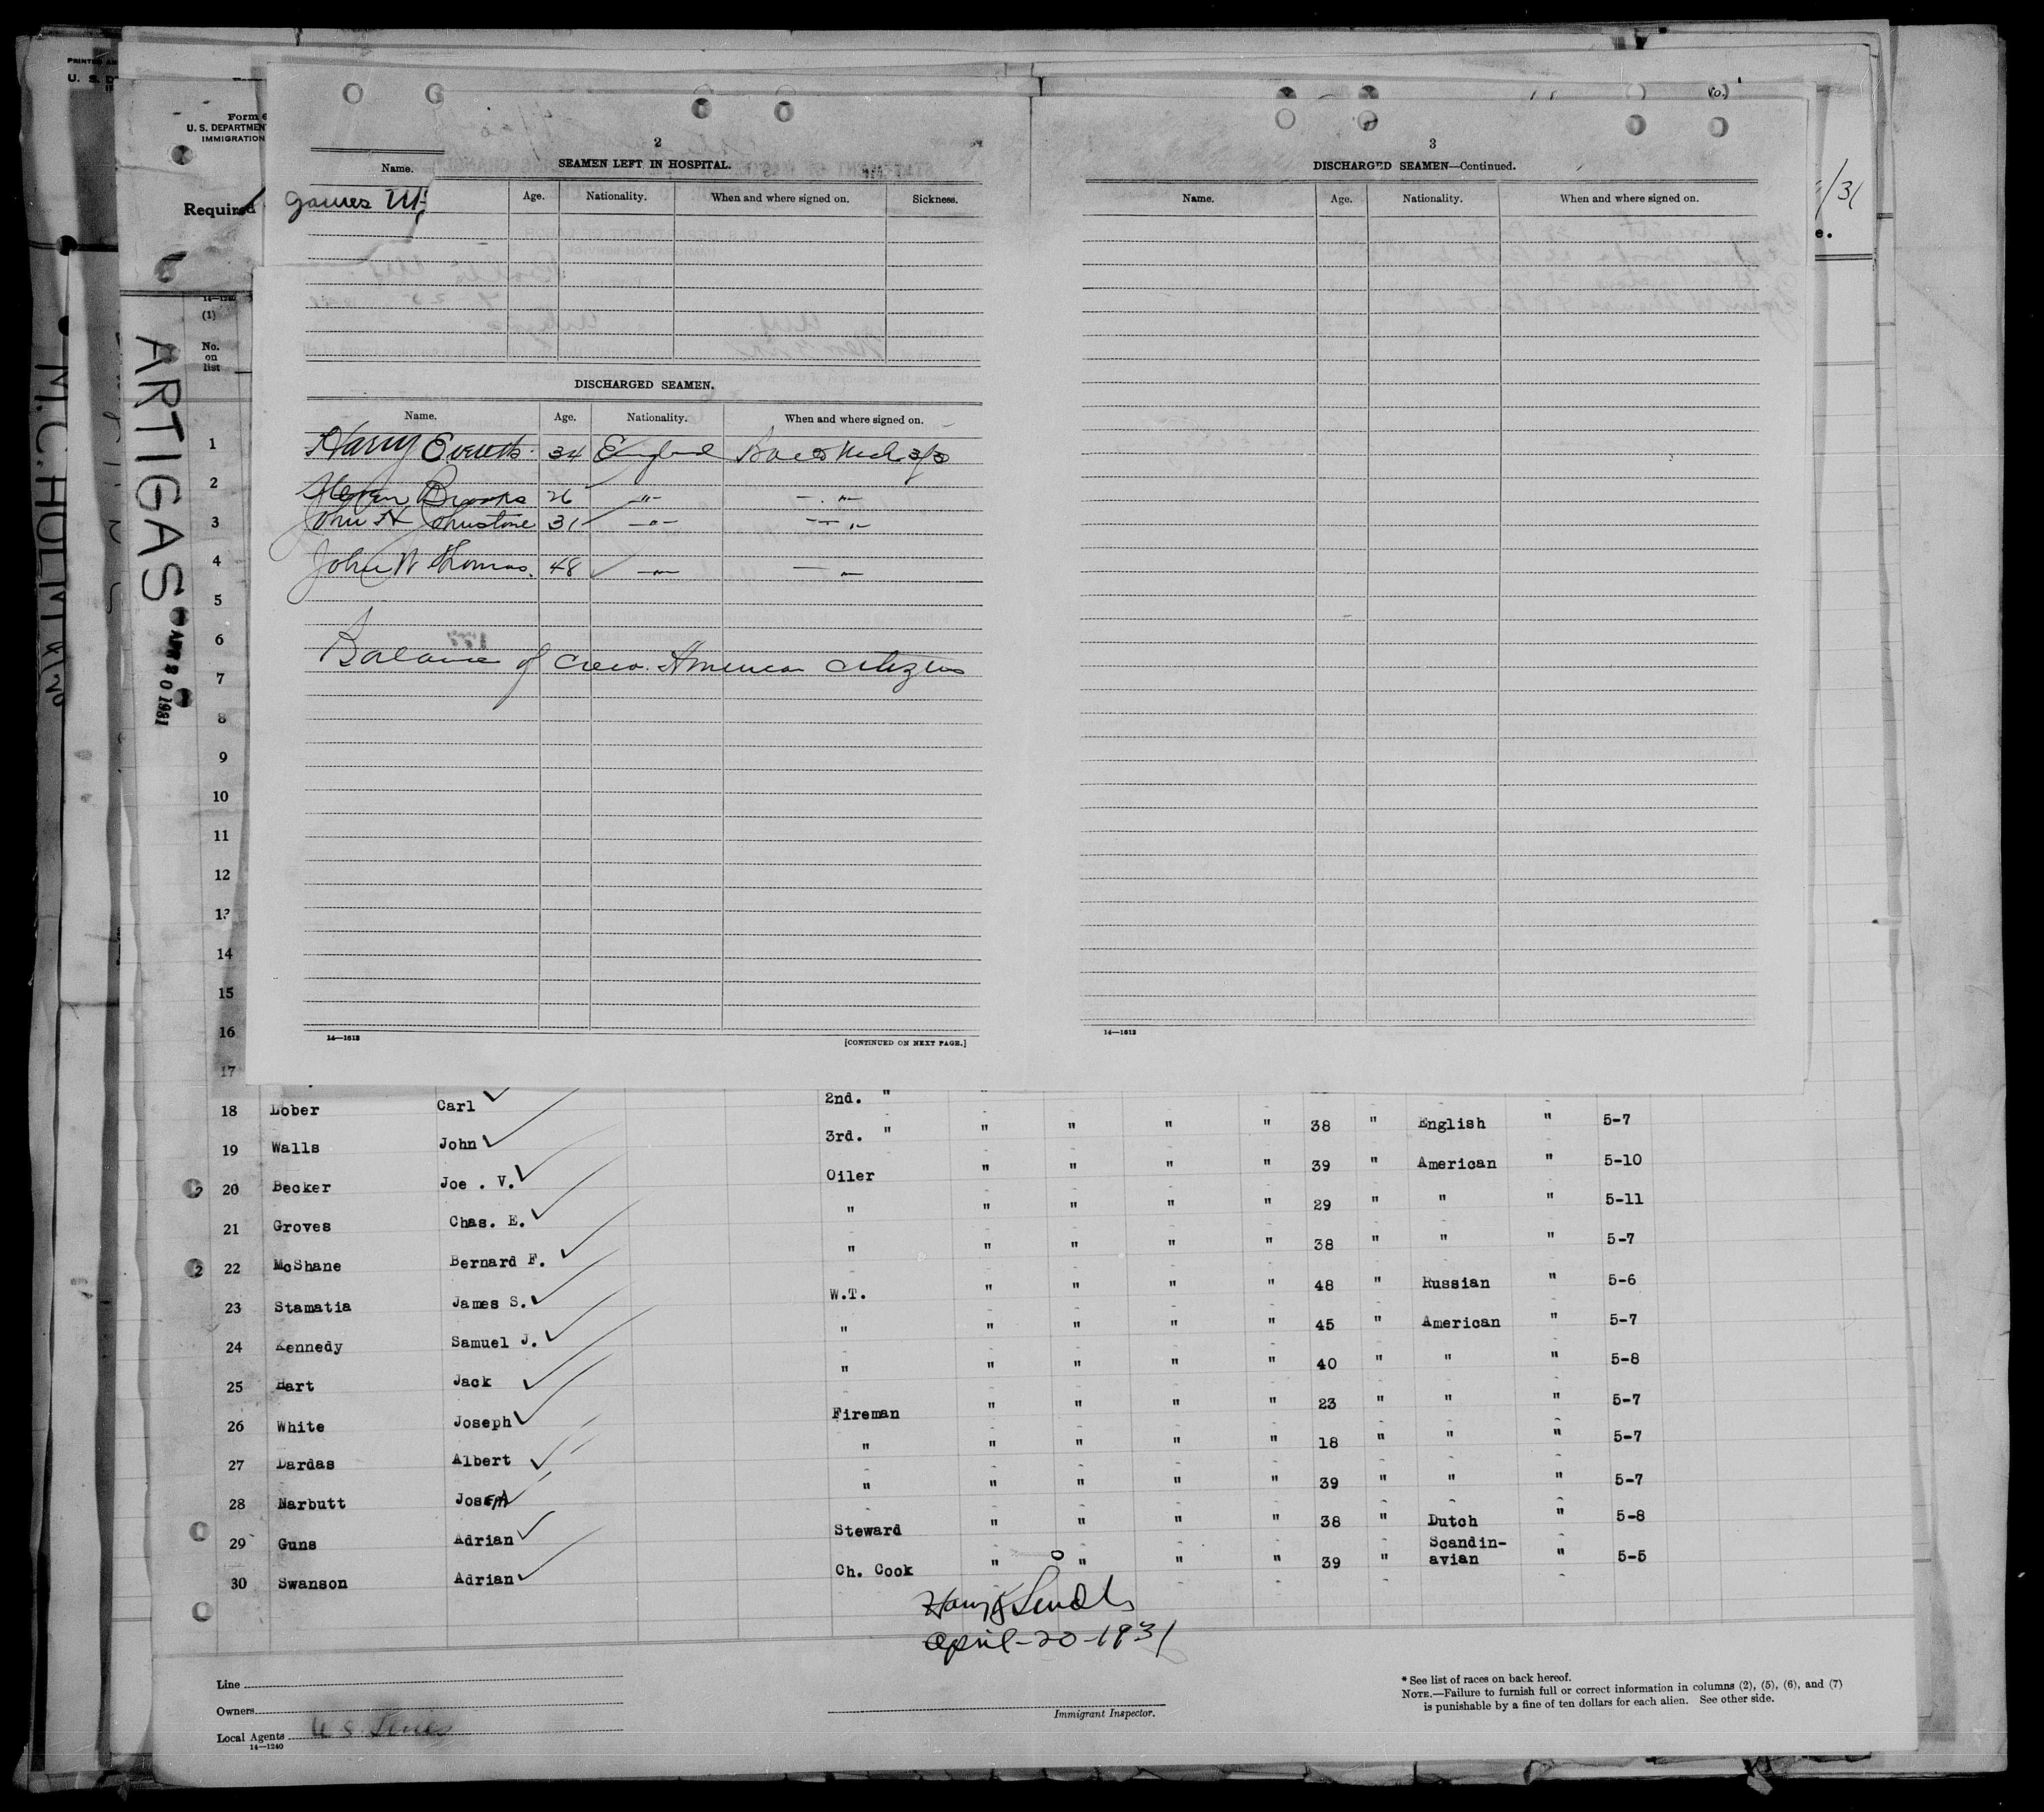 PRINTED
U. S. D
Form
U. S. DEPARTMENT
IMMIGRATION
Required
14—1240
(1)
No.
on
list
M.C. HOLM
ARTIGAS
APR 20 1931
2
SEAMEN LEFT IN HOSPITAL.
Name.
Age. Nationality. When and where signed on. Sickness.
James
DISCHARGED SEAMEN.
Name. Age. Nationality. When and where signed on.
Harry Everett 34 England
Steven Brooks 26 —"— —"—
John H Johnstone 31 —"— —"—
John W Thomas. 48 —"— —"—
Balance of Crew American citizens
14—1613
[CONTINUED ON NEXT PAGE.]
3
DISCHARGED SEAMEN—Continued.
Name. Age. Nationality. When and where signed on.
14—1613
/31
e.
1
2
3
4
5
6
7
8
9
10
11
12
13
14
15
16
17
18 Lober Carl 2nd. " " " " " 38 " English " 5-7
19 Walls John 3rd. " " " " " 39 " American " 5-10
20 Becker Joe . V. Oiler " " " " 29 " " " 5-11
21 Groves Chas. E. " " " " " 38 " " " 5-7
22 McShane Bernard F. " " " " " 48 " Russian " 5-6
23 Stamatia James S. W.T. " " " " 45 " American " 5-7
24 Kennedy Samuel J. " " " " " 40 " " " 5-8
25 Hart Jack " " " " " 23 " " " 5-7
26 White Joseph Fireman " " " " 18 " " " 5-7
27 Dardas Albert " " " " " 39 " " " 5-7
28 Narbutt Joseph " " " " " 38 " Dutch " 5-8
29 Guns Adrian Steward " " " " 39 " Scandin-
avian " 5-5
30 Swanson Adrian Ch. Cook
April-20-1931
Line
Owners
Local Agents U S Lines
14—1240
Immigrant Inspector.
* See list of races on back hereof.
NOTE.—Failure to furnish full or correct information in columns (2), (5), (6), and (7)
is punishable by a fine of ten dollars for each alien. See other side.